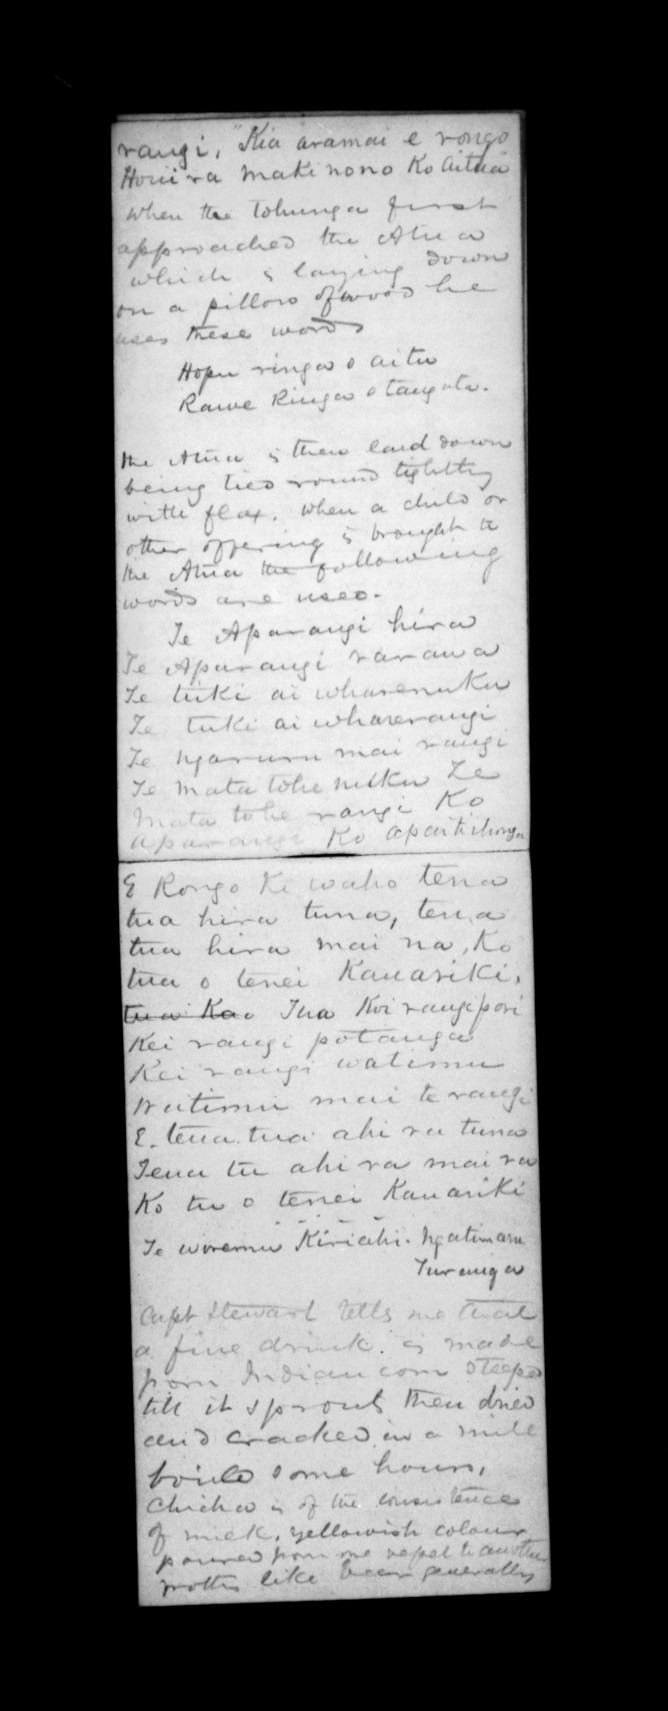 rangi, "Kia aramai e rongo
Houi ra maki nono Ko aitua
When the Tohunga first
approached the Atua
which is laying down
on a pillow of wood he
uses these words
Hopu ringa o aitu
Rawe Ringa o tangata.
the Atua is then laid down
being tied round tightly
with flax. When a child or
other offering is brought to
the Atua the following
words are used.
Te Aparangi hira
Te Aparangi rarawa
Te tuki ai wharenuku
Te tuki ai wharerangi
Te ngaruru mai rangi
Te mata tohe nuku Te
Mata tohe rangi Ko
Aparangi Ko
E Rongo Ki waho tena
tua hira tuna, tena
tua hira mai na, Ko
tua o tenei Kauariki,
tua Kao Tua Koi rangipori
Kei rangi potanga
Kei rangi watimu
Watimu mai te rangi
E. tena tua ahi ra tuna
Tena tu ahi ra mai ra
Ko tu o tenei Kauariki
Te woremu Kiriahi. Ngatimaru
Turanga
Capt Stewart tells me that
a fine drink is made
from Indian corn steeped
till it sprouts then dried
and cracked in a mill
boiled some hours,
Chicha is of the consistence
of milk, yellowish colour
poured from one vessel to another
froths like beer generally